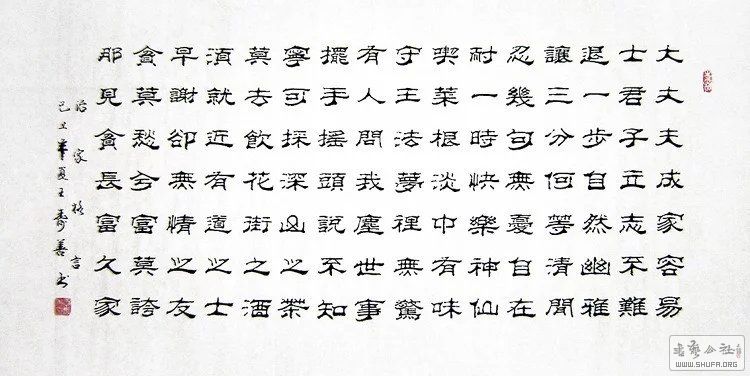 大丈夫成家容易
士君子立志不難
退一步自然幽雅
讓三分何等清閒
忍幾句無憂自在
耐一時快樂神仙
喫菜根淡中有味
守王法夢裡無驚
有人問我塵世事
擺手搖頭說不知
寧可採深山之茶
莫去飲花街之酒
須就近有道之士
早謝卻無情之友
貪莫愁兮富莫誇
那見貪長富久家
治家格言
己丑年夏王壽善書
書藝公社
WWW.SHUFA.ORG